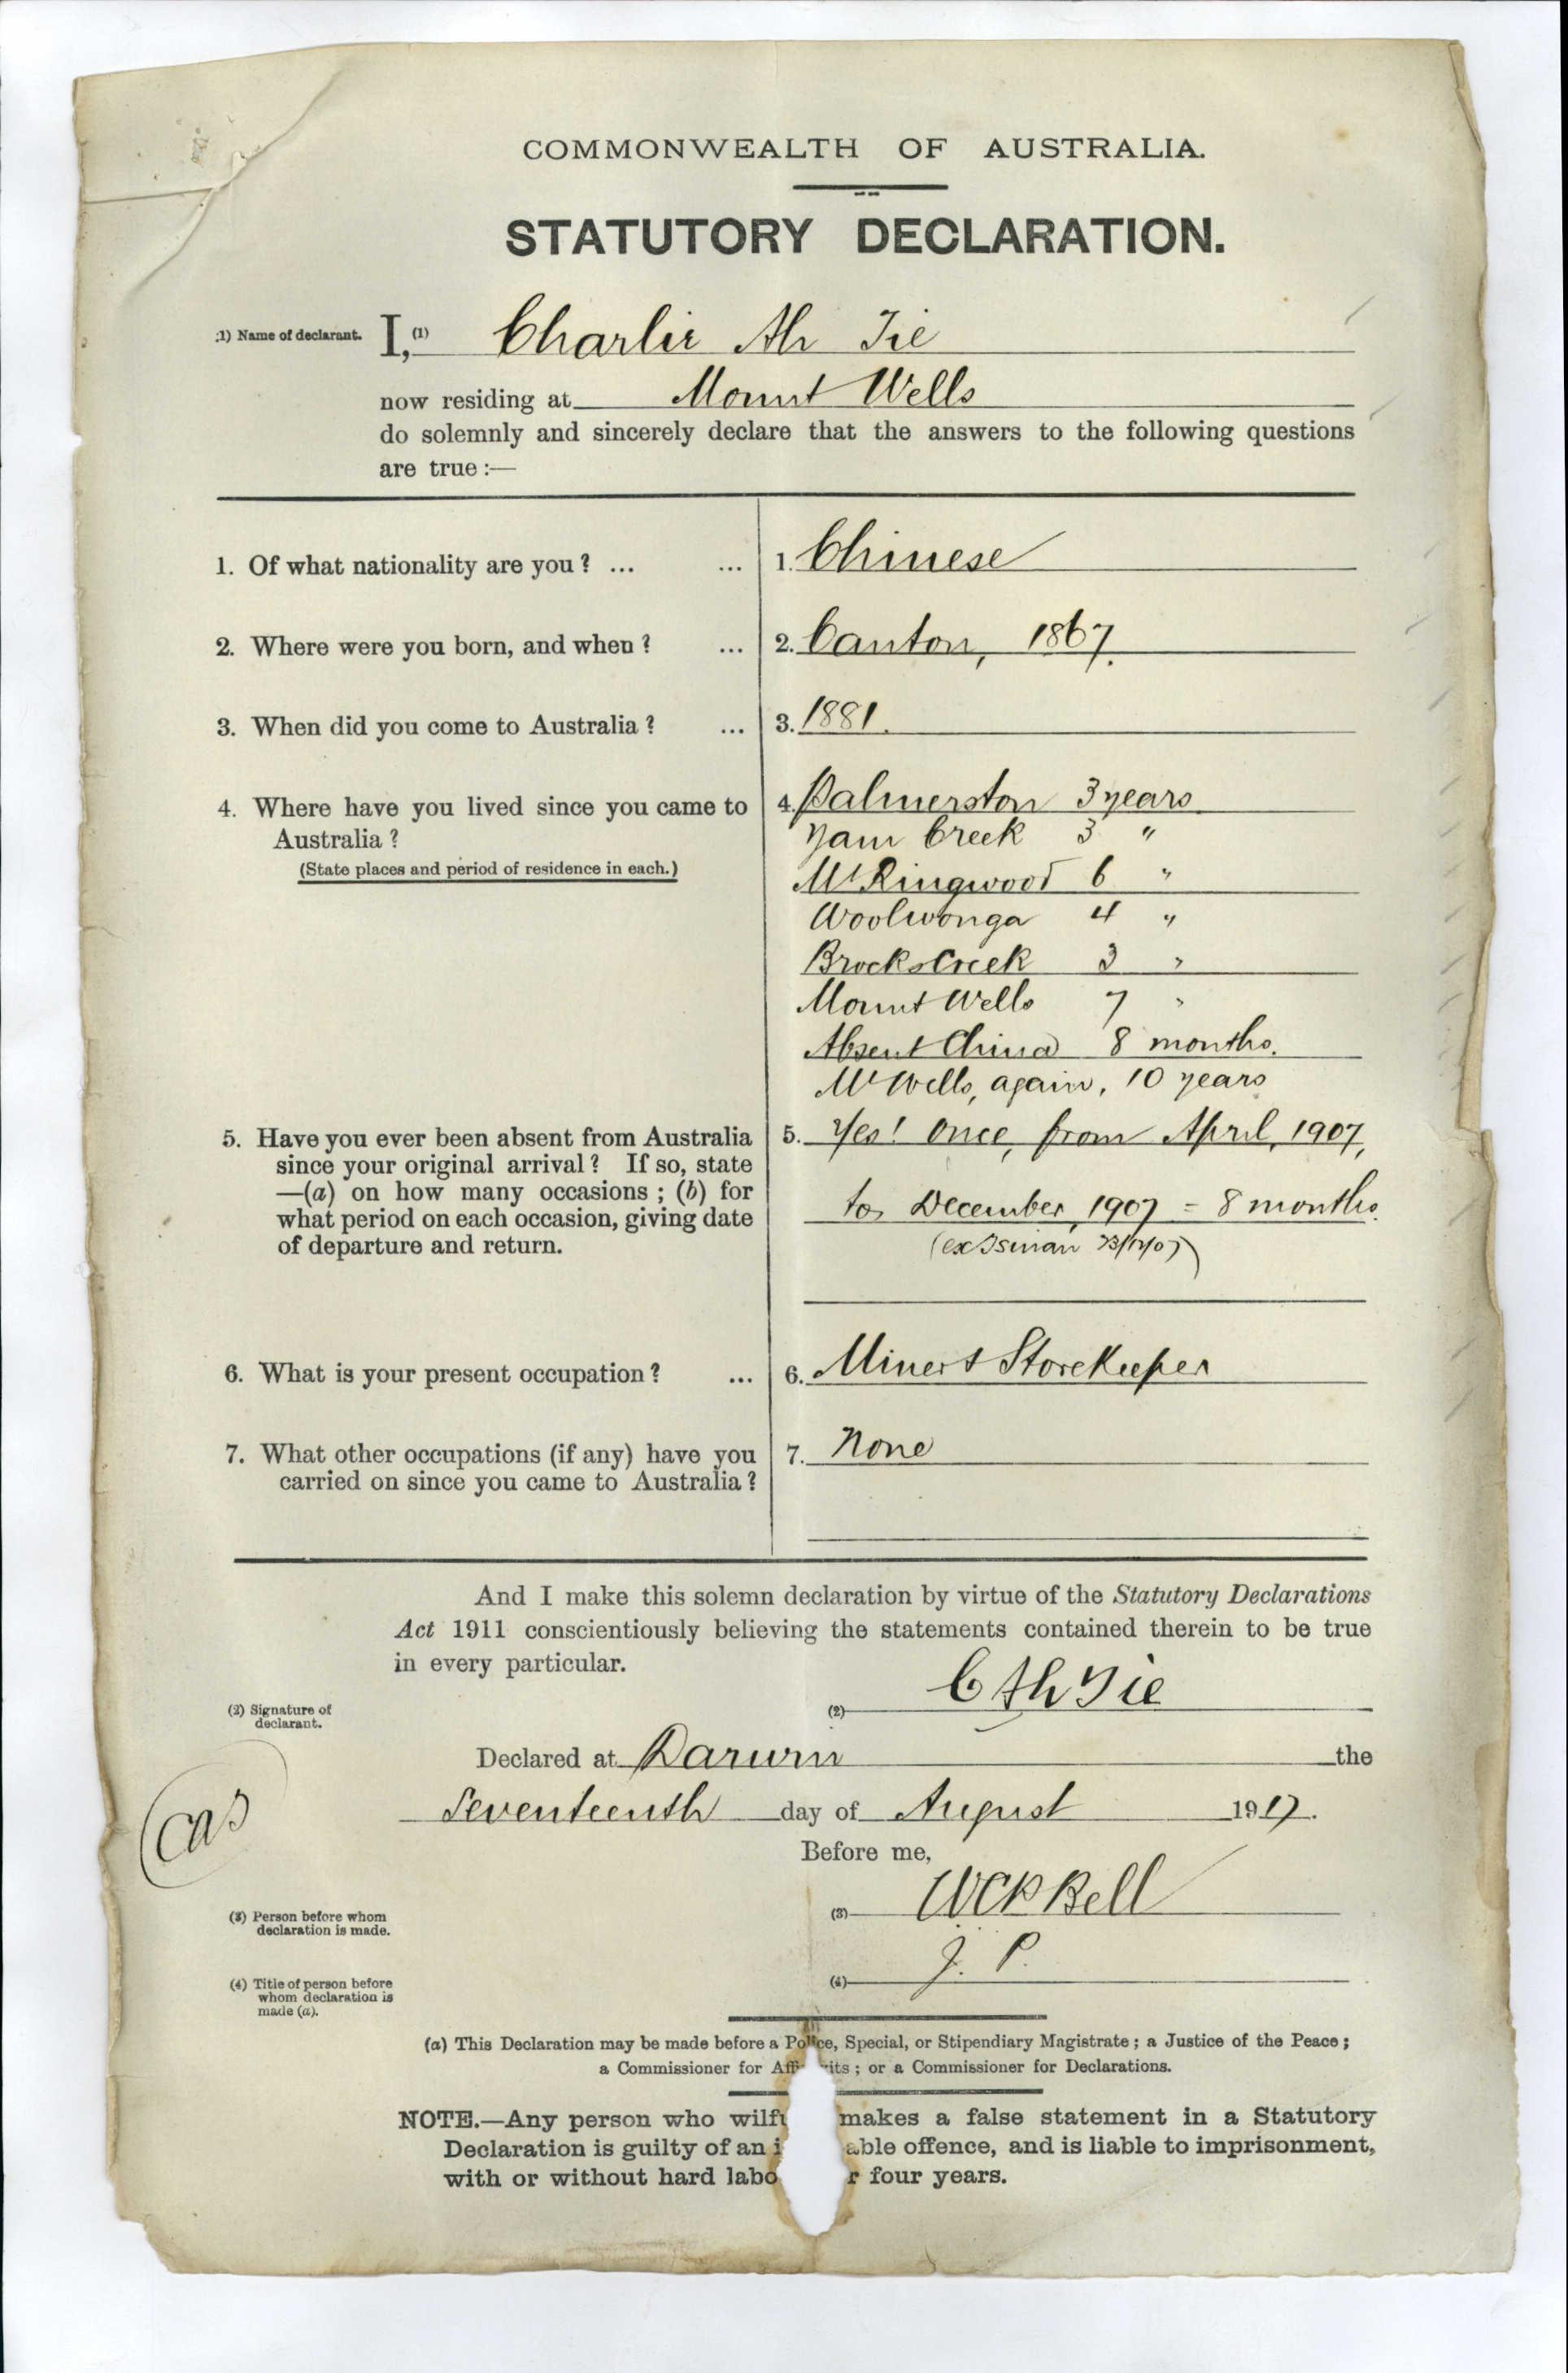 COMMONWEALTH OF AUSTRALIA.
STATUTORY DECLARATION.
(1) Name of declarant. I,(1) Charlie Ah Tie
now residing at Mount Wells
do solemnly and sincerely declare that the answers to the following questions
are true:—
1. Of what nationality are you? ... ... 1. Chinese
2. Where were you born, and when? ... 2. Canton, 1867.
3. When did you come to Australia? ... 3. 1881.
4. Where have you lived since you came to 4. Palmerston 3 years
Australia? Yam Creek 3 "
(State places and period of residence in each.) Mt Ringwood 6 "
Woolwonga 4 "
Brocks Creek 3 "
Mount Wells 7 "
Absent China 8 months.
Mt Wells, again, 10 years
5. Have you ever been absent from Australia 5. Yes! Once, from April, 1907,
since your original arrival? If so, state
—(a) on how many occasions; (b) for to December, 1907 = 8 months.
what period on each occasion, giving date
of departure and return. (ex Tsinan /12/07)
6. What is your present occupation? ... 6. Miner & Storekeeper
7. What other occupations (if any) have you 7. None
carried on since you came to Australia?
And I make this solemn declaration by virtue of the Statutory Declarations
Act 1911 conscientiously believing the statements contained therein to be true
in every particular.
(2) Signature of
declarant.
(2) C Ah Tie
Declared at Darwin the
Seventeenth day of August 1917.
Before me,
(3) Person before whom
declaration is made.
(3) WCP Bell
(4) Title of person before
whom declaration is
made (a).
(4) J. P.
(a) This Declaration may be made before a Police, Special, or Stipendiary Magistrate; a Justice of the Peace;
a Commissioner for Aff its; or a Commissioner for Declarations.
NOTE.—Any person who wilf makes a false statement in a Statutory
Declaration is guilty of an i able offence, and is liable to imprisonment,
with or without hard labo r four years.